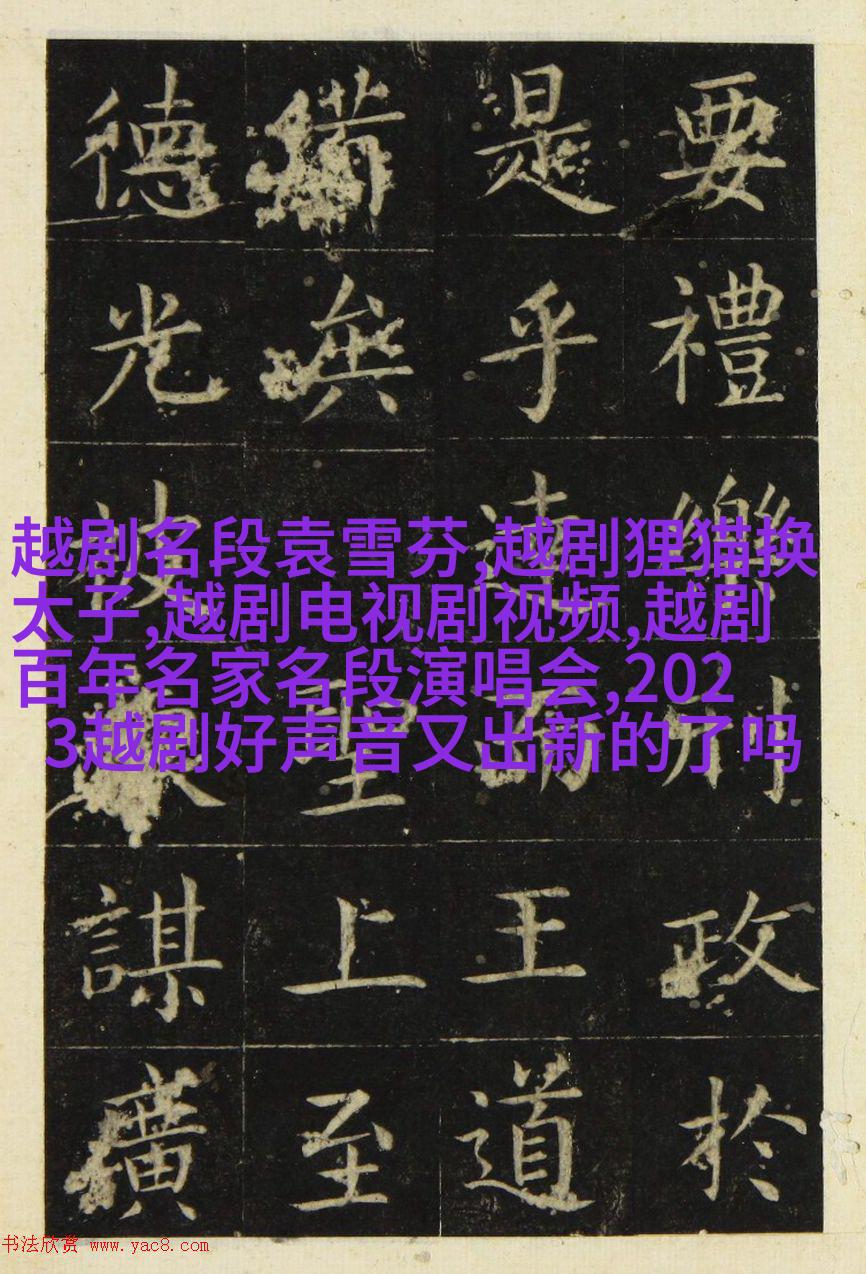 要禮樂刑政於
是乎達而王道
備
聖上至
德光被謀廣
越剧名段袁雪芬,越剧狸猫换
太子,越剧电视剧视频,越剧
百年名家名段演唱会,202
3越剧好声音又出新的了吗
书法欣赏 www.yac8.com